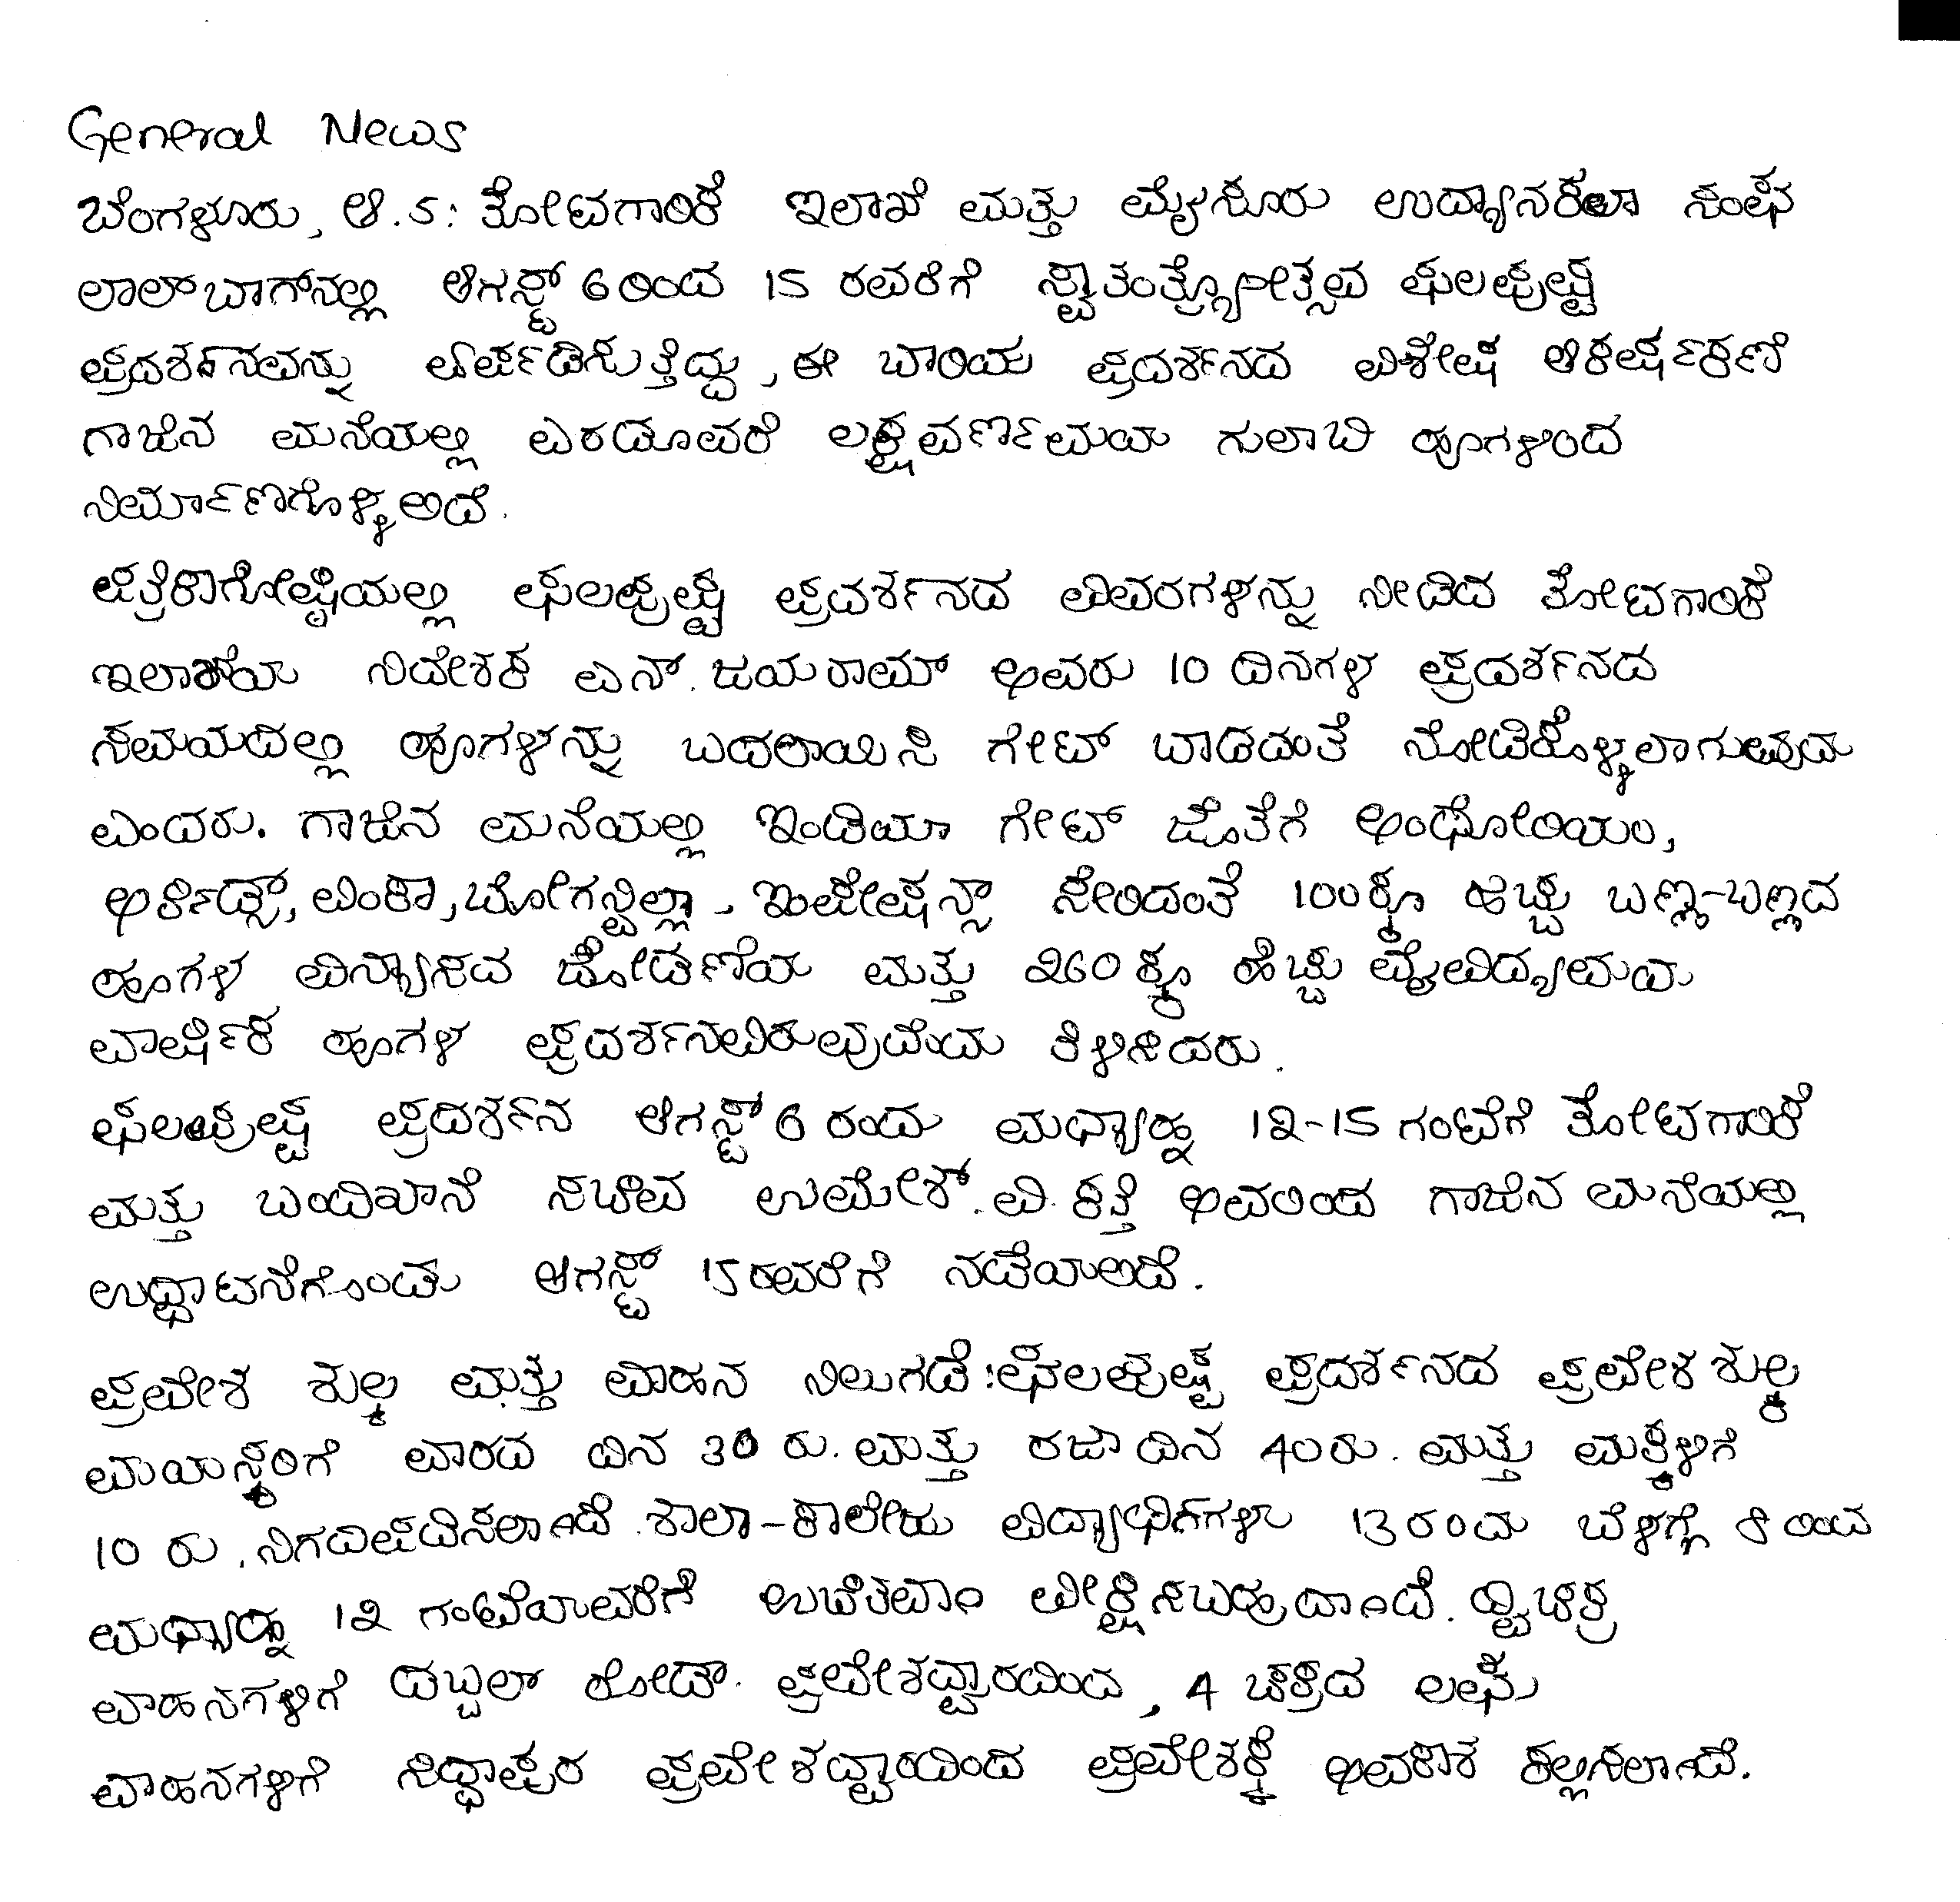 General News
ಬೆಂಗಳೂರು, ಆ.5: ತೋಟಗಾರಿಕೆ ಇಲಾಖೆ ಮತ್ತು ಮೈಸೂರು ಉದ್ಯಾನಕಲಾ ಸಂಘ
ಲಾಲ್‌ಬಾಗ್‌ನಲ್ಲಿ ಆಗಸ್ಟ್ 6ರಿಂದ 15 ರವರೆಗೆ ಸ್ವಾತಂತ್ರ್ಯೋತ್ಸವ ಫಲಪುಷ್ಪ
ಪ್ರದರ್ಶನವನ್ನು ಏರ್ಪಡಿಸುತ್ತಿದ್ದು, ಈ ಬಾರಿಯ ಪ್ರದರ್ಶನದ ವಿಶೇಷ ಆಕರ್ಷಕಣೆ
ಗಾಜಿನ ಮನೆಯಲ್ಲಿ ಎರಡೂವರೆ ಲಕ್ಷವರ್ಣಮಯ ಗುಲಾಬಿ ಹೂಗಳಿಂದ
ನಿರ್ಮಾಣಗೊಳ್ಳಲಿದೆ.
ಪತ್ರಿಕಾಗೋಷ್ಠಿಯಲ್ಲಿ ಫಲಪುಷ್ಪ ಪ್ರದರ್ಶನದ ವಿವರಗಳನ್ನು ನೀಡಿದ ತೋಟಗಾರಿಕೆ
ಇಲಾಖೆಯ ನಿದೇಶಕ ಎನ್. ಜಯರಾಮ್ ಅವರು 10 ದಿನಗಳ ಪ್ರದರ್ಶನದ
ಸಮಯದಲ್ಲಿ ಹೂಗಳನ್ನು ಬದಲಾಯಿಸಿ ಗೇಟ್ ಬಾಡದಂತೆ ನೋಡಿಕೊಳ್ಳಲಾಗುವುದು
ಎಂದರು. ಗಾಜಿನ ಮನೆಯಲ್ಲಿ ಇಂಡಿಯಾ ಗೇಟ್ ಜೊತೆಗೆ ಅಂಥೋರಿಯಂ,
ಆರ್ಕಿಡ್ಸ್, ವಿಂಕಾ, ಬೋಗನ್ವಿಲ್ಲಾ, ಇಂಪೇಷನ್ಸ್ ಸೇರಿದಂತೆ 100ಕ್ಕೂ ಹೆಚ್ಚು ಬಣ್ಣ-ಬಣ್ಣದ
ಹೂಗಳ ವಿನ್ಯಾಸದ ಜೋಡಣೆಯ ಮತ್ತು 260 ಕ್ಕೂ ಹೆಚ್ಚು ವೈವಿದ್ಯಮಯ
ವಾರ್ಷಿಕ ಹೂಗಳ ಪ್ರದರ್ಶನವಿರುವುದೆಂದು ತಿಳಿಸಿದರು.
ಫಲಪುಷ್ಪ ಪ್ರದರ್ಶನ ಆಗಸ್ಟ್ 6 ರಂದು ಮಧ್ಯಾಹ್ನ 12-15 ಗಂಟೆಗೆ ತೋಟಗಾರಿಕೆ
ಮತ್ತು ಬಂದಿಖಾನೆ ಸಚಿವ ಉಮೇಶ್. ವಿ. ಕತ್ತಿ ಅವರಿಂದ ಗಾಜಿನ ಮನೆಯಲ್ಲಿ
ಉದ್ಘಾಟನೆಗೊಂಡು ಆಗಸ್ಟ್ 15ರವರೆಗೆ ನಡೆಯಲಿದೆ.
ಪ್ರವೇಶ ಶುಲ್ಕ ಮತ್ತು ವಾಹನ ನಿಲುಗಡೆ: ಫಲಪುಷ್ಪ ಪ್ರದರ್ಶನದ ಪ್ರವೇಶ ಶುಲ್ಕ
ವಯಸ್ಕರಿಗೆ ವಾರದ ದಿನ 30 ರು. ಮತ್ತು ರಜಾ ದಿನ 40ರು. ಮತ್ತು ಮಕ್ಕಳಿಗೆ
10 ರು. ನಿಗದಿಪಡಿಸಲಾಗಿದೆ. ಶಾಲಾ-ಕಾಲೇಜು ವಿದ್ಯಾರ್ಥಿಗಳು 13 ರಂದು ಬೆಳಗ್ಗೆ 8 ರಿಂದ
ಮಧ್ಯಾಹ್ನ 12 ಗಂಟೆಯವರೆಗೆ ಉಚಿತವಾಗಿ ವೀಕ್ಷಿಸಬಹುದಾಗಿದೆ. ದ್ವಿಚಕ್ರ
ವಾಹನಗಳಿಗೆ ಡಬ್ಬಲ್ ರೋಡ್. ಪ್ರವೇಶದ್ವಾರದಿಂದ, 4 ಚಕ್ರದ ಲಘು
ವಾಹನಗಳಿಗೆ ಸಿದ್ಧಾಪುರ ಪ್ರವೇಶದ್ವಾರದಿಂದ ಪ್ರವೇಶಕ್ಕೆ ಅವಕಾಶ ಕಲ್ಪಿಸಲಾಗಿದೆ.